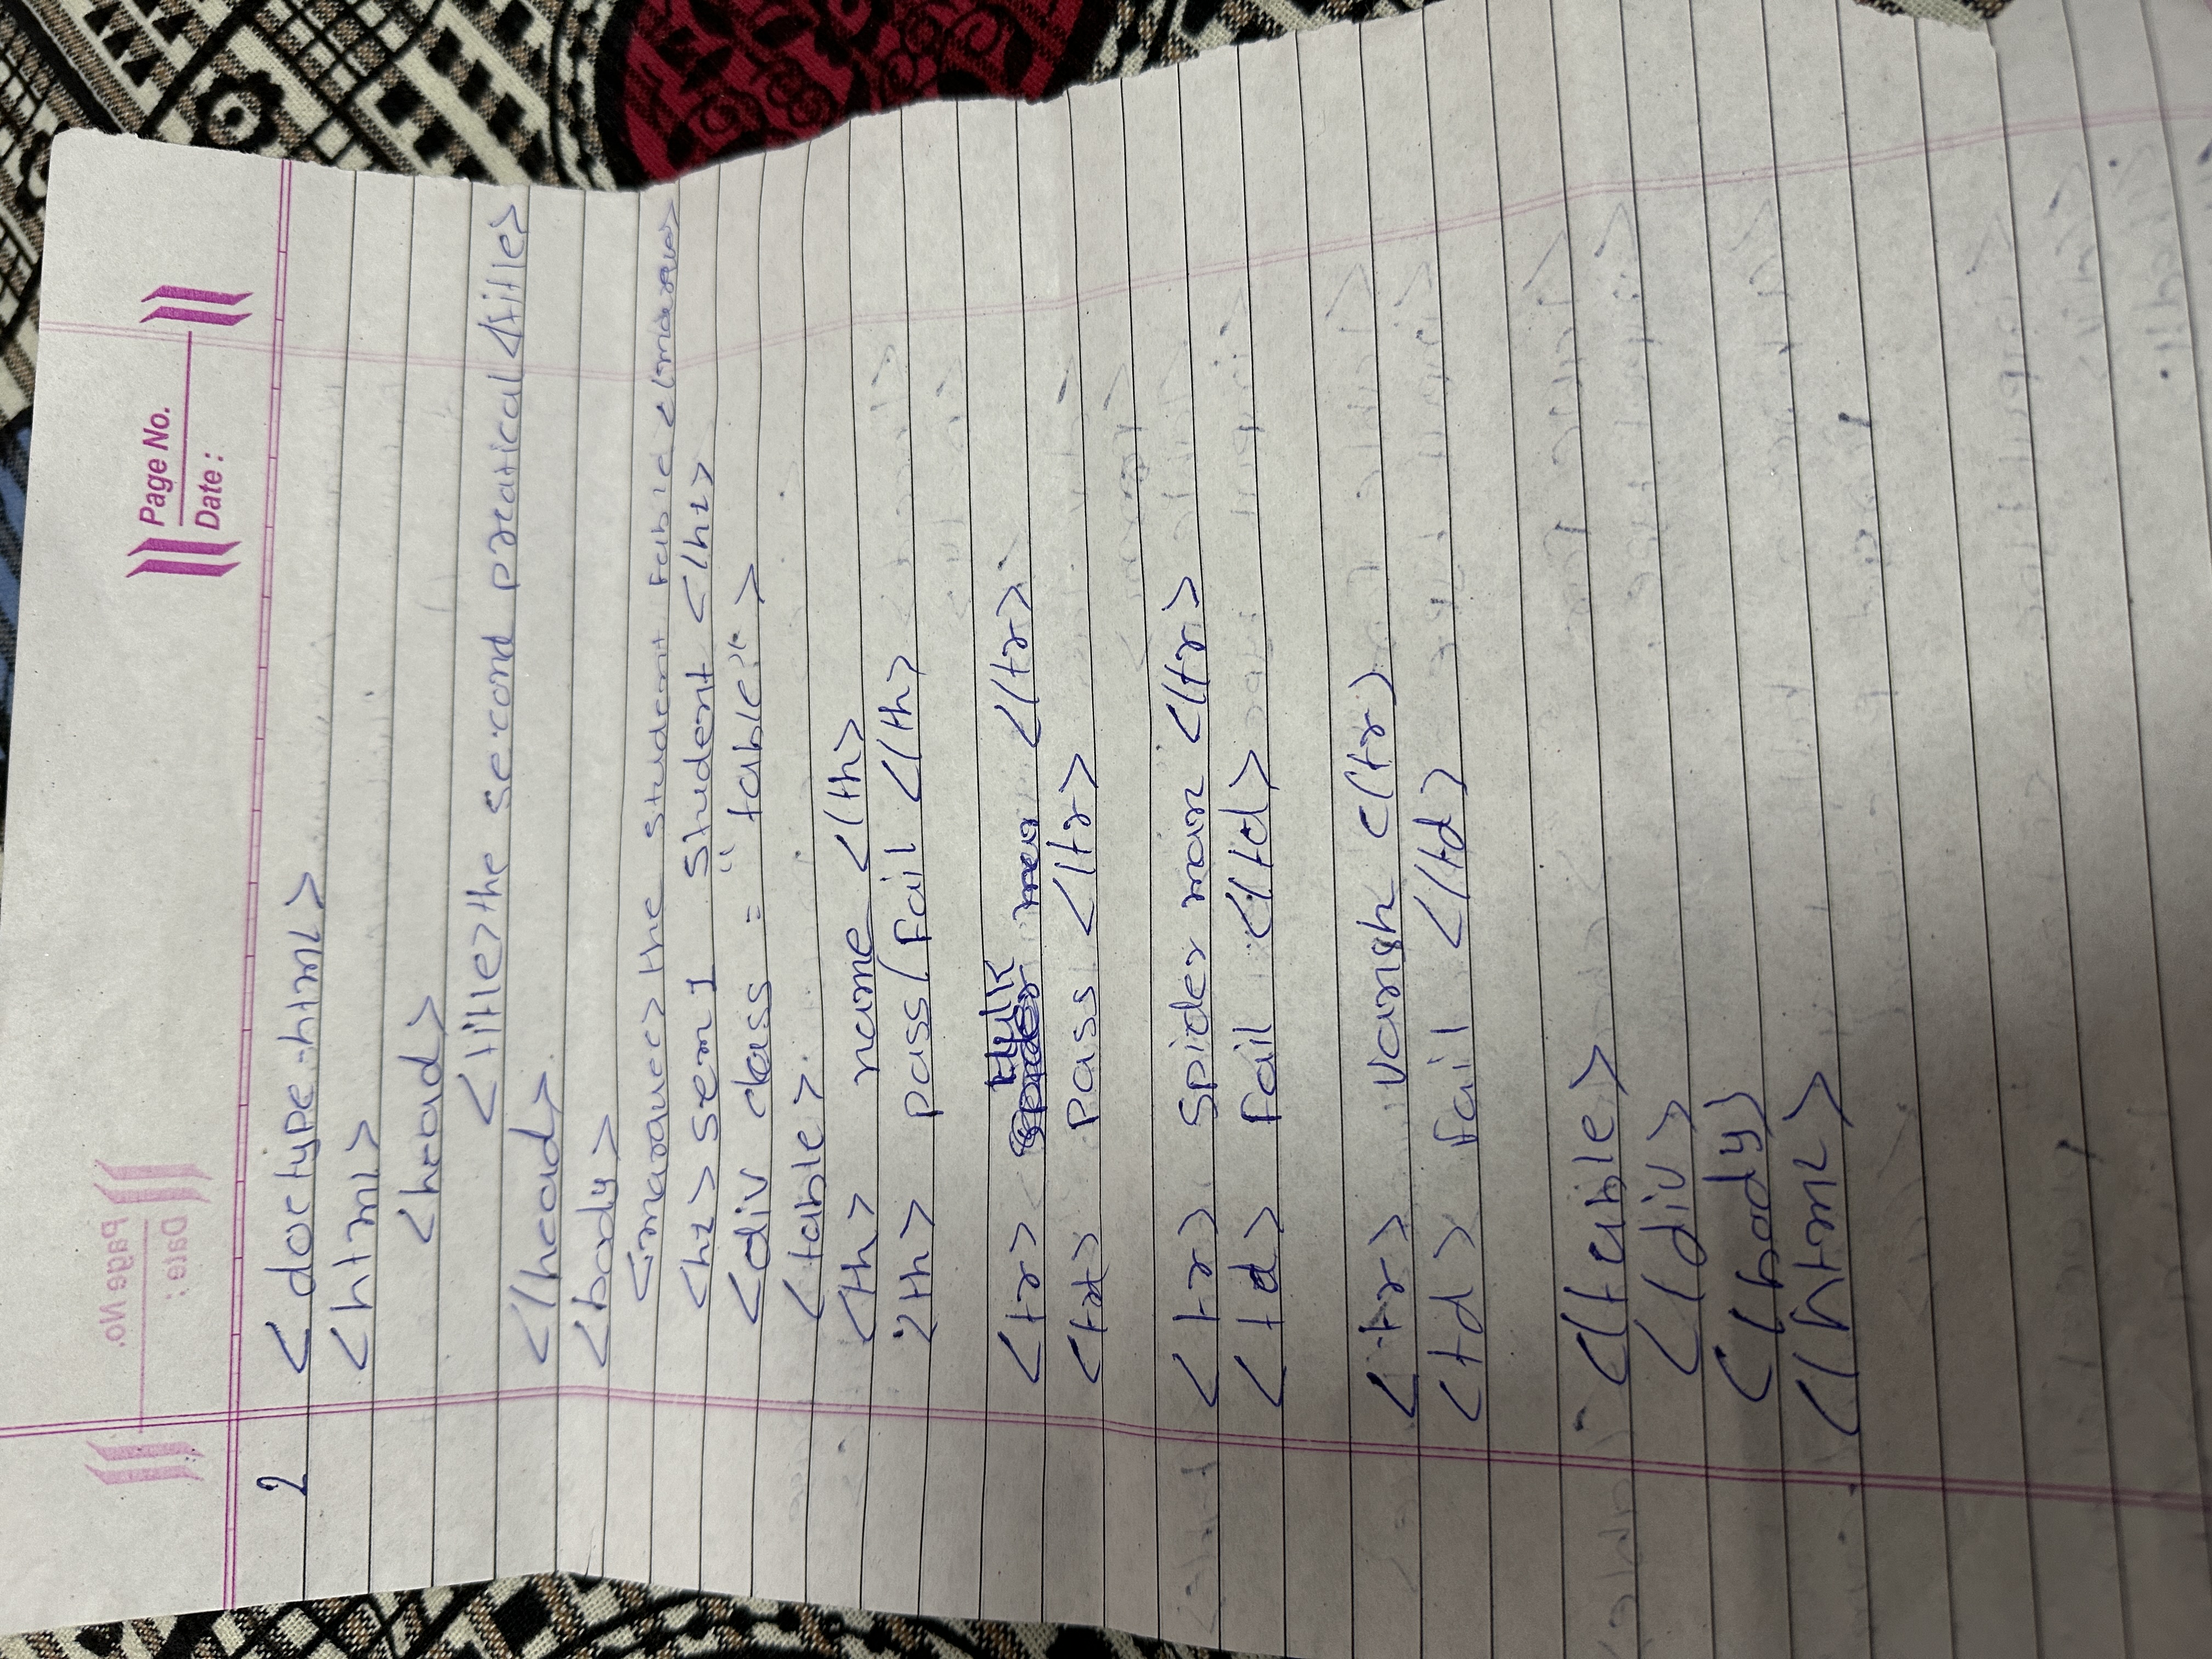 Page No.
Date :
2 < doctype html>
<html>
<head>
<title>the second preatical </title>
</head>
<body>
<marquee> the student table </marque>
<h1> sem 1 student </h1>
<div class = "table" >
<table>
<th> name </th>
<th> pass/Fail </th>
Hulk
<tr> </tr>
pass </tr>
<tr> spider man </tr>
<td> Fail </td>
<tr> vansh </tr>
<td> fail </td>
</table>
</div>
</body>
</html>